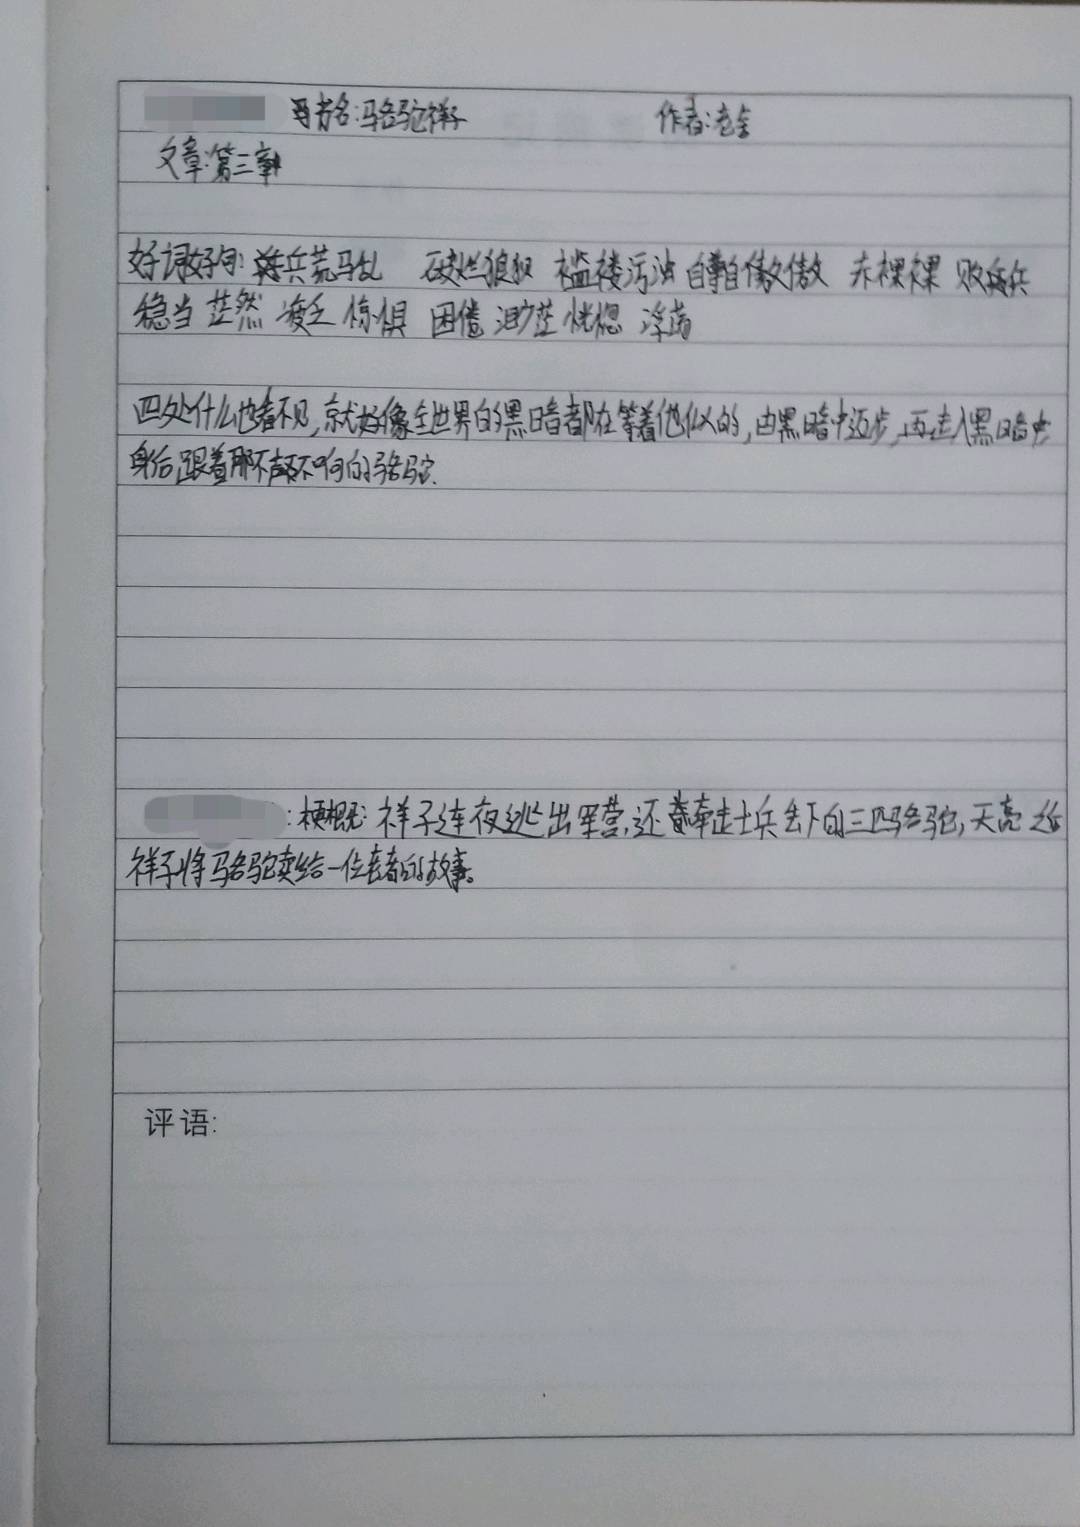 书名:骆驼祥子 作者:老舍
文章:第三章
好词好句: 兵荒马乱 破烂狼狈 褴褛污浊 自自傲傲 赤裸裸 败兵
稳当 茫然 疲乏 惊惧 困倦 渺茫 恍惚 浮荡
四处什么也看不见,就好像全世界的黑暗都在等着他似的,由黑暗中迈步,再走入黑暗中
身后跟着那不声不响的骆驼.
:梗概: 祥子连夜逃出军营,还牵走士兵丢下的三匹骆驼,天亮之后
祥子将骆驼卖给一位老者的故事。
评语: